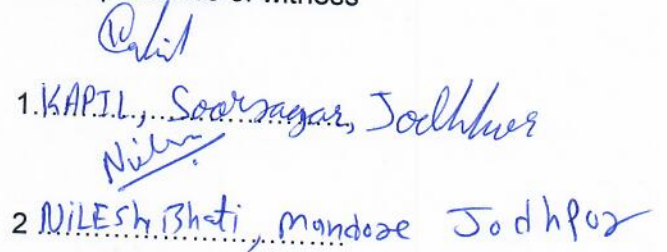 of witness
Kapil
1. KAPIL, Soorsagar, Jodhpur
Nilesh
2 NiLESh Bhati, Mandore Jodhpur